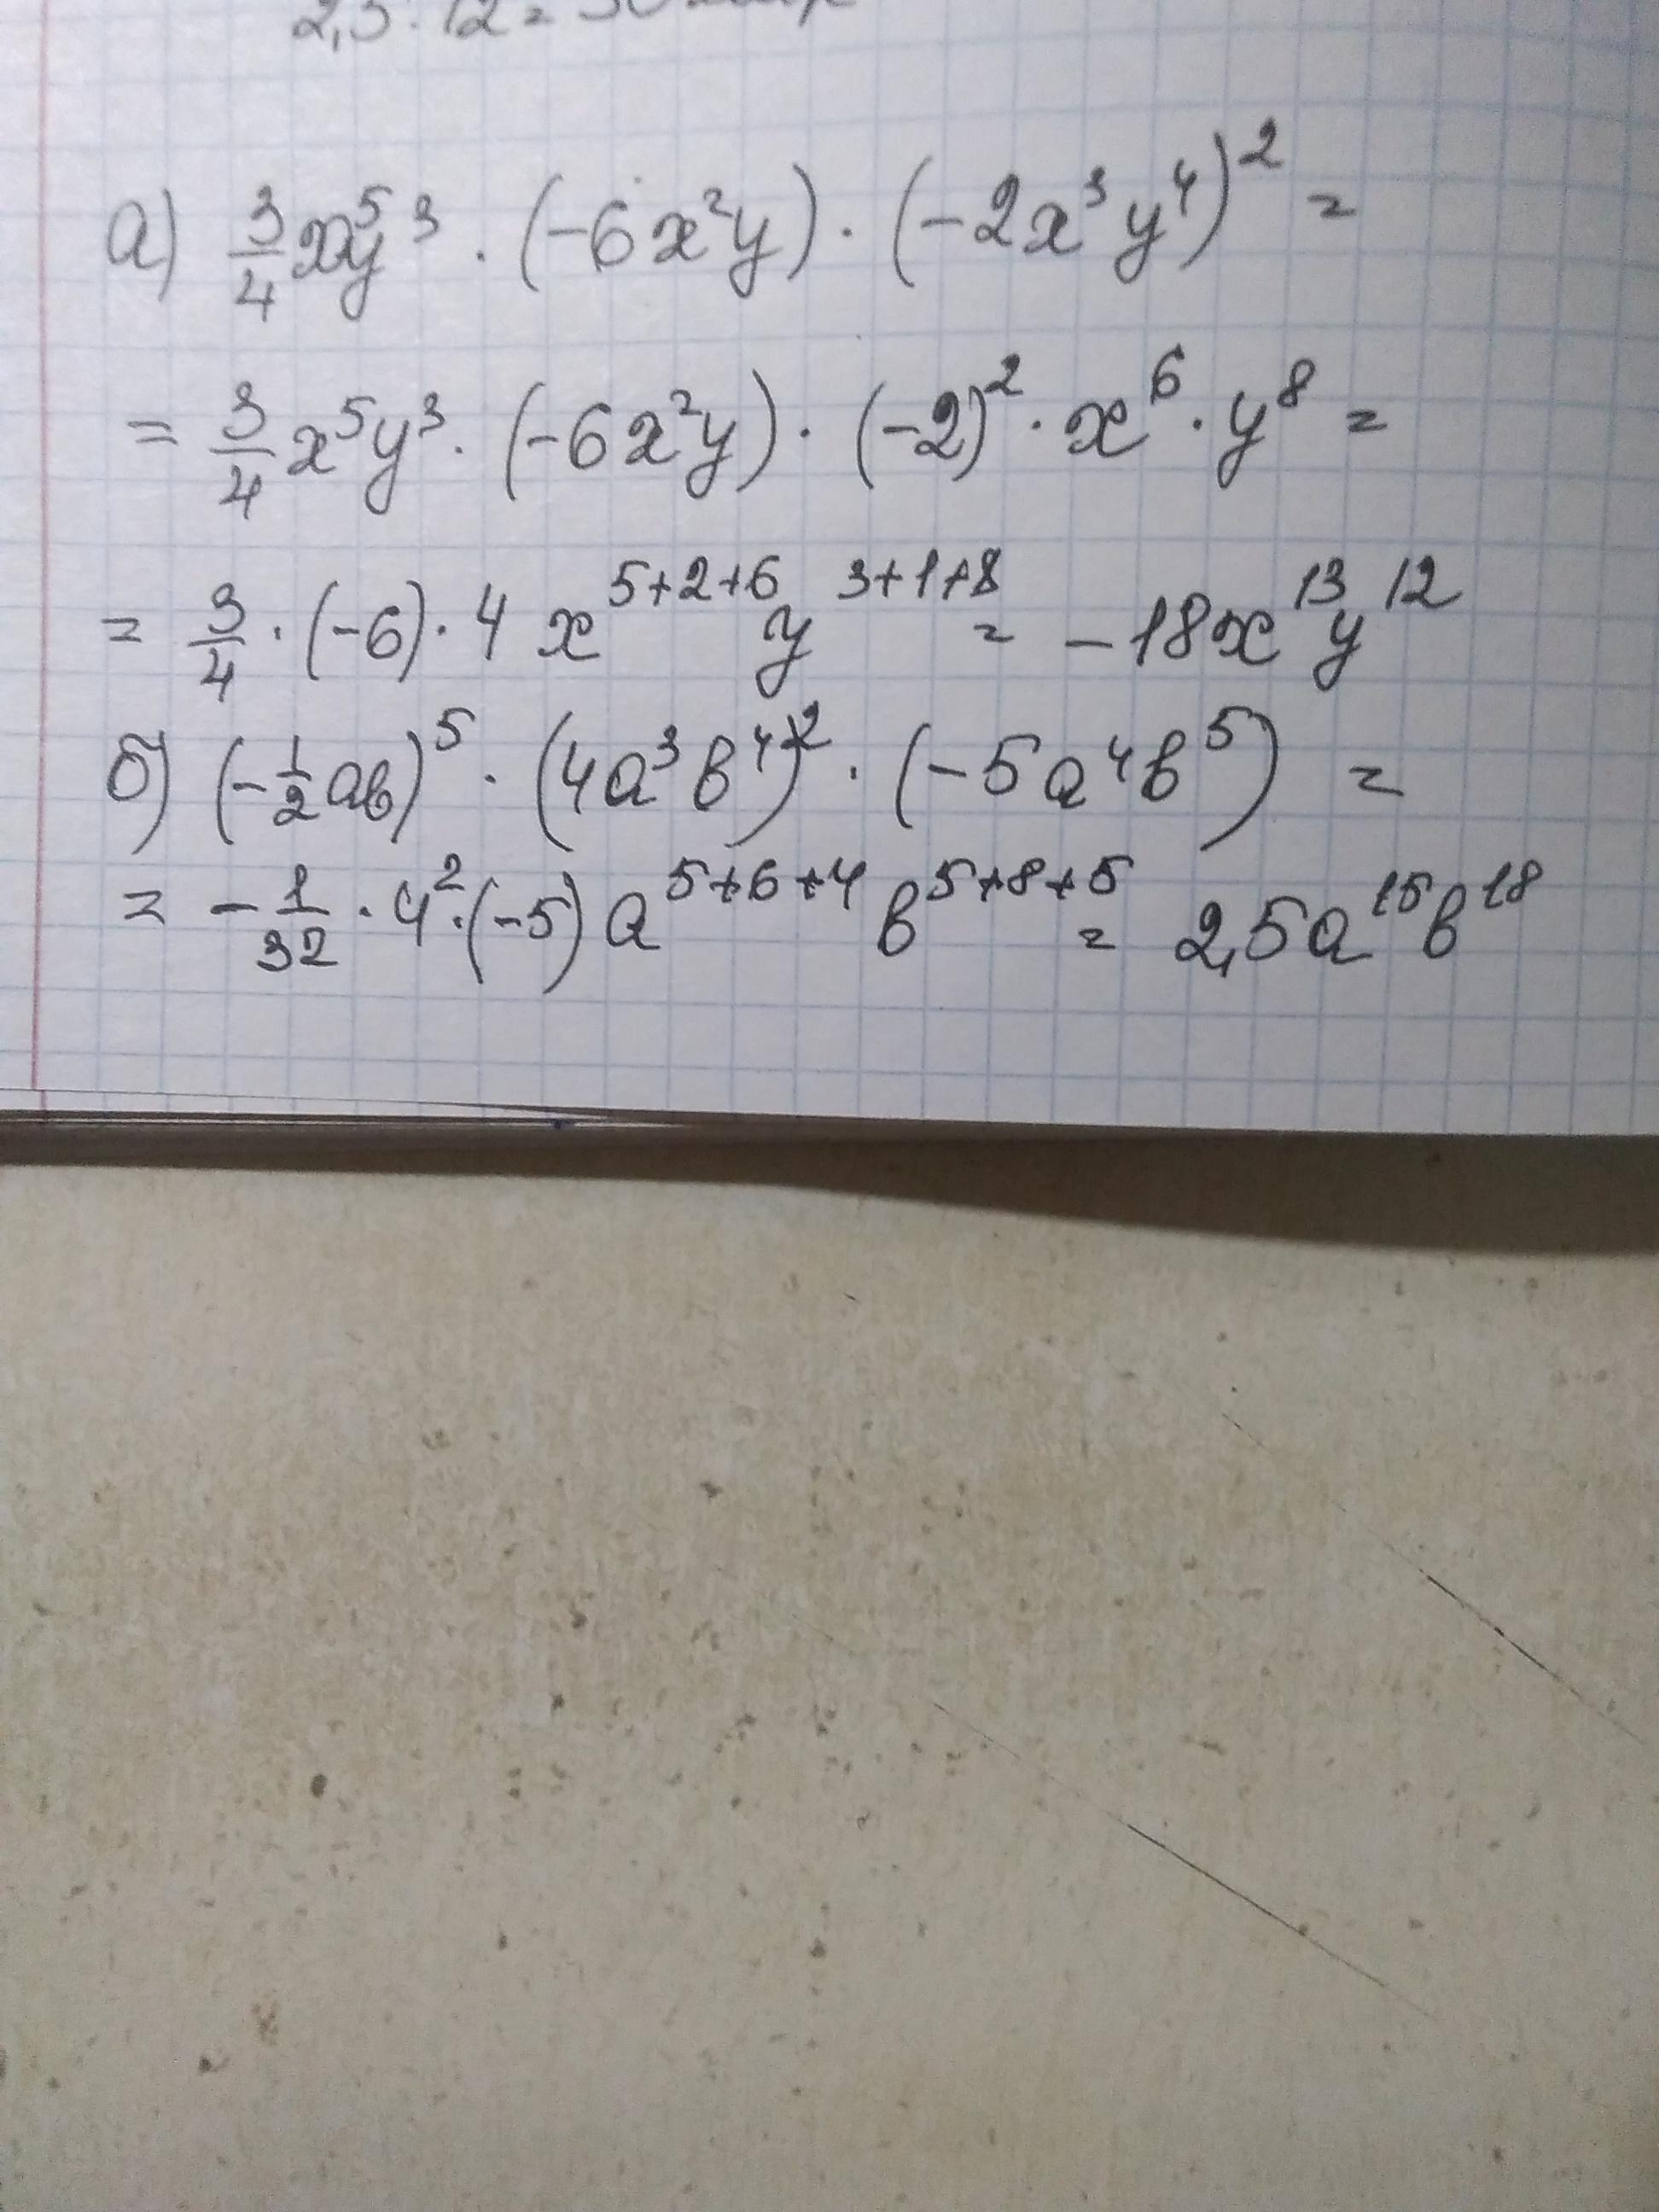 2,5 · 12 = 30
а) 3/4 x⁵y³ · (-6x²y) · (-2x³y⁴)² =
= 3/4 x⁵y³ · (-6x²y) · (-2)² · x⁶ · y⁸ =
= 3/4 · (-6) · 4 x⁵⁺²⁺⁶ y³⁺¹⁺⁸ = -18x¹³y¹²
б) (-1/2 ав)⁵ · (4а³в⁴)² · (-5а⁴в⁵) =
= -1/32 · 4² · (-5) а⁵⁺⁶⁺⁴ в⁵⁺⁸⁺⁵ = 2,5а¹⁵в¹⁸